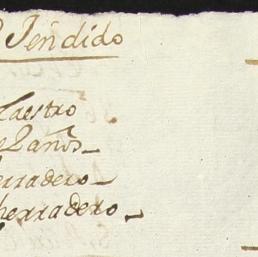 Teñdido
Maestro
2 años
erradero
herradero